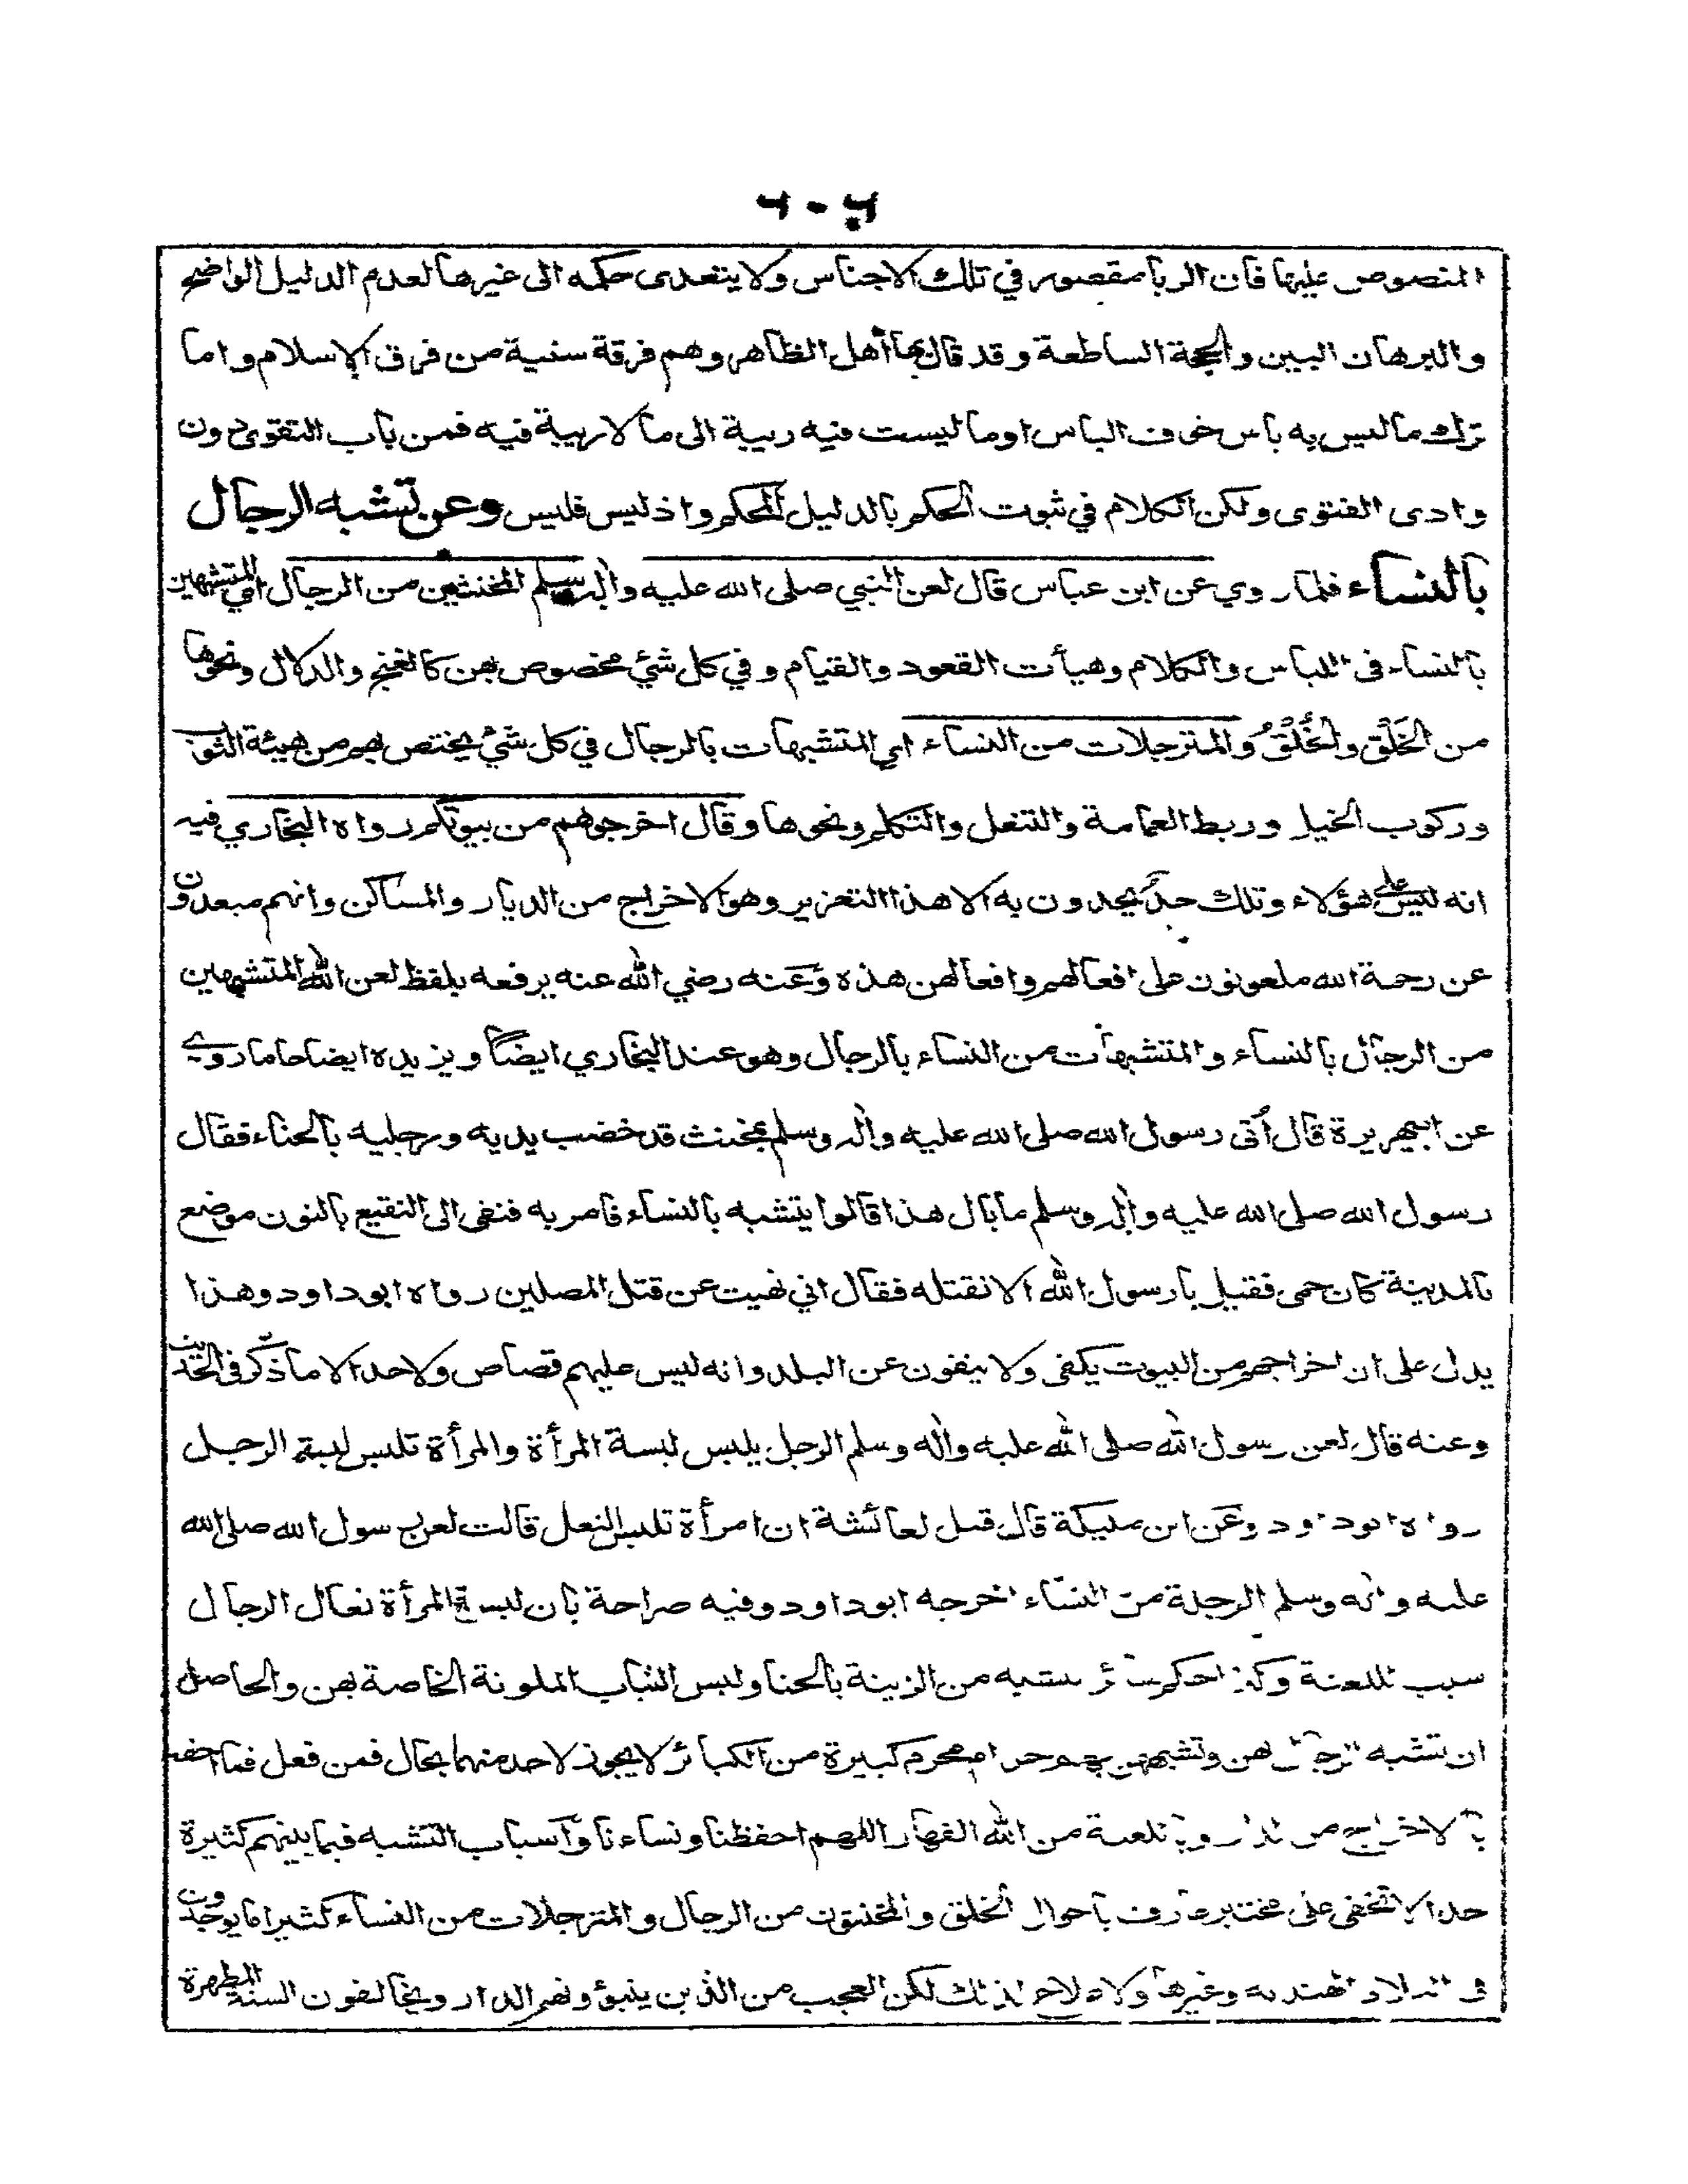 ٢٠٦
المنصوص عليها فان الربا مقصور في تلك الاجناس ولا يتعدى حكمه الى غيرها لعدم الدليل الواضح
والبرهان البين والحجة الساطعة وقد قال بها أهل الظاهر وهم فرقة سنية من فرق الإسلام واما
ترك ما ليس به باس خوف الباس او ما ليست فيه ريبة الى ما لا ريبة فيه فمن باب التقوى دون
وادى الفتوى ولكن الكلام في ثبوت الحكم بالدليل المحكم واذ ليس فليس وعن تشبه الرجال
بالنساء فلما روي عن ابن عباس قال لعن النبي صلى الله عليه واله وسلم المخنثين من الرجال اي المتشبهين
بالنساء فى اللباس والكلام وهيأت القعود والقيام وفي كل شئ مخصوص بهن كالغنج والدلال ونحوها
من الخَلْق والخُلْقُ والمترجلات من النساء اي المتشبهات بالرجال في كل شئ يختص بهم من هيئة الثوب
وركوب الخيل وربط العمامة والتنعل والتكلم ونحوها وقال اخرجوهم من بيوتكم رواه البخاري فيه
انه ليس على هؤلاء وتلك حدّ يحدون به الا هذا التعزير وهو الاخراج من الديار والمساكن وانهم مبعدون
عن رحمة الله ملعونون على افعالهم وافعالهن هذه وعنه رضي الله عنه يرفعه بلفظ لعن الله المتشبهين
من الرجال بالنساء والمتشبهات من النساء بالرجال وهو عند البخاري ايضاً ويزيده ايضاحا ما روي
عن ابي هريرة قال أتى رسول الله صلى الله عليه واله وسلم بمخنث قد خضب يديه ورجليه بالحناء فقال
رسول الله صلى الله عليه واله وسلم ما بال هذا قالوا يتشبه بالنساء فامر به فنفى الى النقيع بالنون موضع
بالمدينة كان حمى فقيل يا رسول الله الا نقتله فقال اني نهيت عن قتل المصلين رواه ابوداود وهذا
يدل على ان اخراجهم من البيوت يكفى ولا ينفون عن البلد وانه ليس عليهم قصاص ولا حد الا ما ذكر في الحديث
وعنه قال لعن رسول الله صلى الله عليه واله وسلم الرجل يلبس لبسة المرأة والمرأة تلبس لبسة الرجل
رواه ابوداود وعن ابن مليكة قال قيل لعائشة ان امرأة تلبس النعل قالت لعن رسول الله صلى الله
عليه واله وسلم الرجلة من النساء اخرجه ابوداود وفيه صراحة بان لبسة المرأة نعال الرجال
سبب للعنة وكذا حكم سائر من الزينة بالحنا ولبس الثياب الملونة الخاصة بهن والحاصل
ان تشبه الرجال بهن وتشبههن بهم حرام محرم كبيرة من الكبائر لا يجوز لاحد منهما بحال فمن فعل فما
بالاخراج من الدار وباللعنة من الله القهار اللهم احفظنا ونساءنا وأسباب التشبه فيما بينهم كثيرة
جدا لا تخفى على مختبر عارف باحوال الخلق والمخنثون من الرجال والمترجلات من النساء كثيرا ما يوجدون
فى البلاد الهندية وغيرها لذلك لكن العجب من الذين ينبؤونهم الدار ويخالفون السنة المطهرة